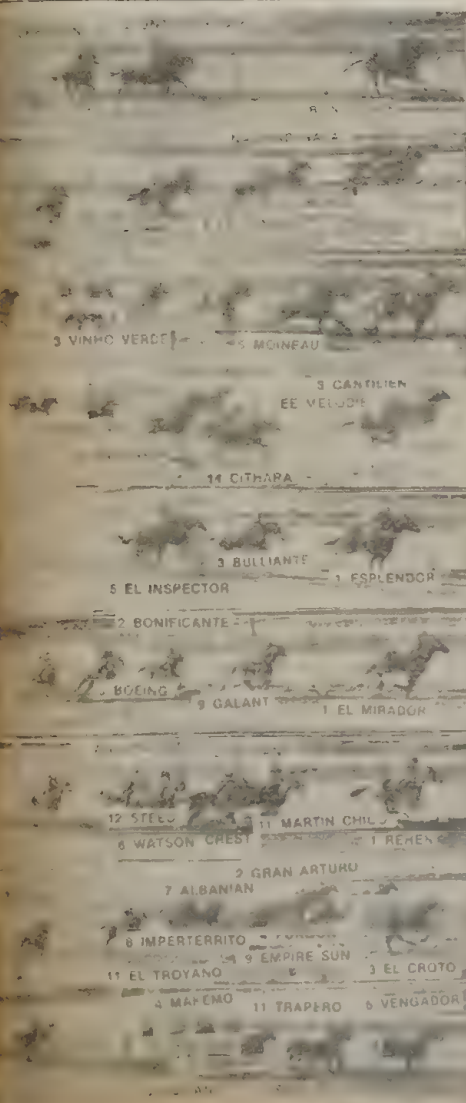 3 VINHO VERDE 5 MOINEAU
3 CANTILIEN
14 CITHARA
3 BULLIANTE
1 ESPLENDOR
5 EL INSPECTOR
2 BONIFICANTE
BOEING
9 GALANT
1 EL MIRADOR
12 STEED 11 MARTIN
6 WATSON CHEST 1
2 GRAN ARTURO
7 ALBANIAN
8 IMPERTERRITO
9 EMPIRE SUN
11 EL TROYANO 3 EL CROTO
4 MAFEMO 11 TRAPERO 6 VENGADOR